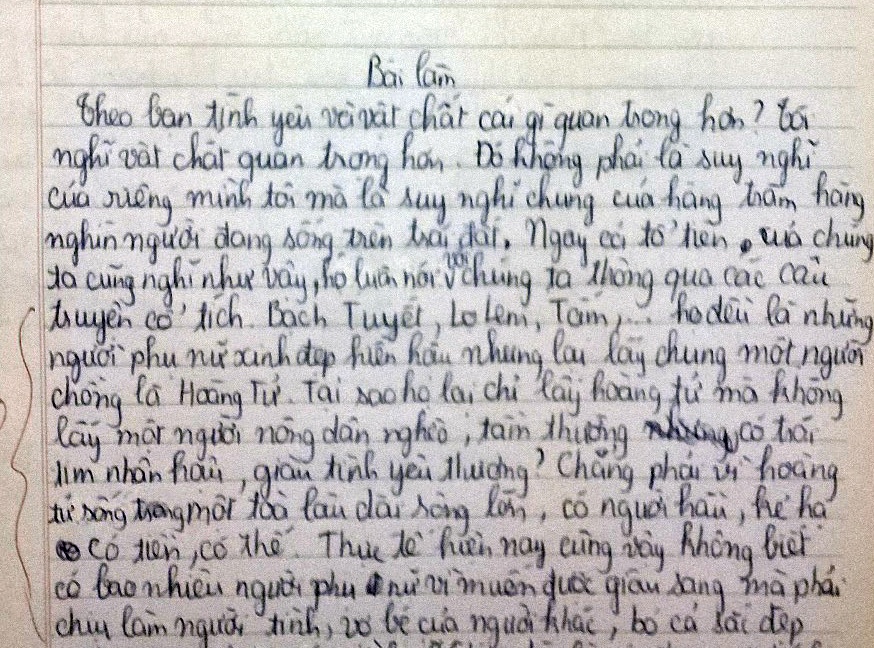 Bài làm
Theo bạn tình yêu và vật chất cái gì quan trọng hơn? Tôi
nghĩ vật chất quan trọng hơn. Đó không phải là suy nghĩ
của riêng mình tôi mà là suy nghĩ chung của hàng trăm hàng
nghìn người đang sống trên trái đất. Ngay cả tổ tiên của chúng
ta cũng nghĩ như vậy, họ luôn nói với chúng ta thông qua các câu
truyện cổ tích. Bạch Tuyết, Lọ Lem, Tấm,... họ đều là những
người phụ nữ xinh đẹp hiền hậu nhưng lại lấy chung một người
chồng là Hoàng Tử. Tại sao họ lại chỉ lấy hoàng tử mà không
lấy một người nông dân nghèo, tầm thường có trái
tim nhân hậu, giàu tình yêu thương? Chẳng phải vì hoàng
tử sống trong một toà lâu đài sang lớn, có người hầu, kẻ hạ
có tiền, có thế. Thực tế hiện nay cũng vậy không biết
có bao nhiêu người phụ nữ vì muốn được giàu sang mà phải
chịu làm người tình, vợ bé của người khác, bỏ cả sắc đẹp